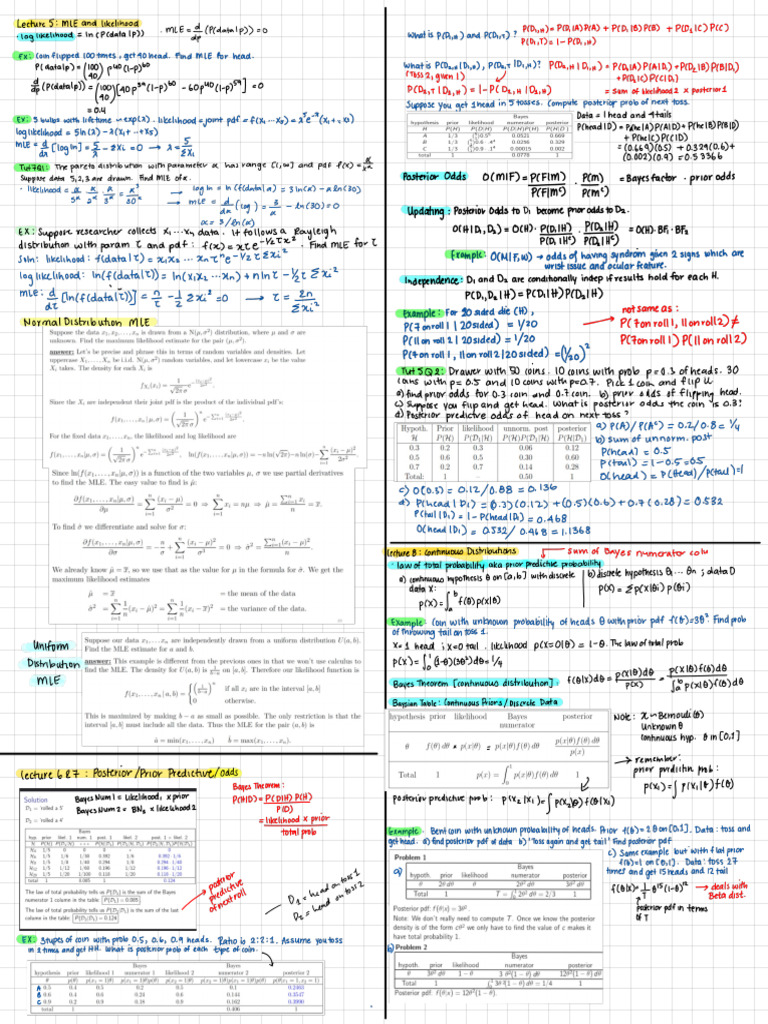 Lecture 5: MLE and likelihood
· log likelihood = ln(P(data|p)) · MLE = d/dp (P(data|p)) = 0
EX: Coin flipped 100 times, get 40 head. Find MLE for head.
P(data|p) = (100 40) p^40 (1-p)^60
d/dp (P(data|p)) = (100 40)[40p^39(1-p)^60 - 60p^40(1-p)^59] = 0
= 0.4
EX: 5 bulbs with lifetime ~ exp(λ) - likelihood = joint pdf = f(x1 ... x5) = λ^5 e^-λ(x1 + ... + x5)
log likelihood = 5ln(λ) - λ(x1 + ... + x5)
MLE = d/dλ [log ln] = 5/λ - Σxi = 0 → λ = 5/Σxi
Tut 7Q1: The pareto distribution with parameter α has range [1,∞] and pdf f(x) =
Suppose data 5,2,3 are drawn. Find MLE of α.
· likelihood =
→ log ln = ln(f(data|α)) = 3ln(α) - α ln(30)
→ MLE = d/dα (log) = 3/α - ln(30) = 0
α = 3/ln(30)
EX: Suppose researcher collects x1 ... xn data. It follows a Rayleigh
distribution with param τ and pdf: f(x) = xτe^-1/2τx². Find MLE for τ
Soln: likelihood: f(data|τ) = x1x2 ... xn τ^n e^-1/2τΣxi²
log likelihood: ln(f(data|τ)) = ln(x1x2 ... xn) + n ln τ - 1/2 τ Σxi²
MLE: d/dτ [ln(f(data|τ))] = n/τ - 1/2 Σxi² = 0 → τ = 2n/Σxi²
Normal Distribution MLE
Suppose the data x1, x2, ..., xn is drawn from a N(μ, σ²) distribution, where μ and σ are
unknown. Find the maximum likelihood estimate for the pair (μ, σ²).
answer: Let's be precise and phrase this in terms of random variables and densities. Let
uppercase X1, ..., Xn be i.i.d. N(μ, σ²) random variables, and let lowercase xi be the value
Xi takes. The density for each Xi is
fXi(xi) = 1/(√2π σ) e^-(xi-μ)²/2σ²
Since the Xi are independent their joint pdf is the product of the individual pdf's:
f(x1, ..., xn | μ, σ) = (1/(√2π σ))^n e^-Σ(xi-μ)²/2σ²
For the fixed data x1, ..., xn, the likelihood and log likelihood are
f(x1, ..., xn|μ, σ) = (1/(√2π σ))^n e^-Σ(xi-μ)²/2σ², ln(f(x1, ..., xn|μ, σ)) = -n ln(√2π) - n ln(σ) - Σ (xi-μ)²/2σ²
Since ln(f(x1, ..., xn|μ, σ)) is a function of the two variables μ, σ we use partial derivatives
to find the MLE. The easy value to find is μ̂:
∂f(x1, ..., xn|μ, σ)/∂μ = Σ (xi - μ)/σ² = 0 ⇒ Σ xi = nμ ⇒ μ̂ = Σ xi/n = x̄.
To find σ̂ we differentiate and solve for σ:
∂f(x1, ..., xn|μ, σ)/∂σ = -n/σ + Σ (xi - μ)²/σ³ = 0 ⇒ σ̂² = Σ(xi - μ)²/n.
We already know μ̂ = x̄, so we use that as the value for μ in the formula for σ̂. We get the
maximum likelihood estimates
μ̂ = x̄ = the mean of the data
σ̂² = Σ 1/n (xi - μ̂)² = Σ 1/n (xi - x̄)² = the variance of the data.
Uniform
Distribution
MLE
Suppose our data x1, ..., xn are independently drawn from a uniform distribution U(a, b).
Find the MLE estimate for a and b.
answer: This example is different from the previous ones in that we won't use calculus to
find the MLE. The density for U(a, b) is 1/(b-a) on [a, b]. Therefore our likelihood function is
f(x1, ..., xn | a, b) = { (1/(b-a))^n if all xi are in the interval [a, b]
0 otherwise.
This is maximized by making b - a as small as possible. The only restriction is that the
interval [a, b] must include all the data. Thus the MLE for the pair (a, b) is
â = min(x1, ..., xn) b̂ = max(x1, ..., xn).
lecture 6&7 : Posterior/Prior Predictive/odds
Solution
D1 = 'rolled a 5'
D2 = 'rolled a 4'
Bayes Num 1 = likelihood1 × prior
Bayes Num 2 = BN1 × likelihood 2
Bayes Theorem:
P(H|D) = P(D|H) P(H) / P(D)
= likelihood × prior / total prob
The law of total probability tells us P(D1) is the sum of the Bayes
numerator 1 column in the table: P(D1) = 0.085
The law of total probability tells us P(D2) is the sum of the last
column in the table: P(D2|D1) = 0.124
posterior
predictive
of next roll
D1 = head on toss 1
D2 = head on toss 2
EX: 3 types of coin with prob 0.5, 0.6, 0.9 heads. Ratio is 2:2:1. Assume you toss
in 2 times and get HH. What is posterior prob of each type of coin.
Bayes Bayes
hypothesis prior likelihood 1 numerator 1 likelihood 2 numerator 2 posterior 2
θ p(θ) p(x1 = 1|θ) p(x1 = 1|θ)p(θ) p(x2 = 1|θ) p(x2 = 1|θ)p(x1 = 1|θ)p(θ) p(θ|x1 = 1, x2 = 1)
A 0.5 0.4 0.5 0.2 0.5 0.1 0.2463
B 0.6 0.4 0.6 0.24 0.6 0.144 0.3547
C 0.9 0.2 0.9 0.18 0.9 0.162 0.3990
total 1 0.406 1
What is P(D1,H) and P(D1,T)?
P(D1,H) = P(D1|A)P(A) + P(D1|B)P(B) + P(D1|C)P(C)
P(D1,T) = 1 - P(D1,H)
What is P(D2,H|D1,H), P(D2,T|D1,H)?
(Toss 2, given 1)
P(D2,H|D1,H) = P(D2|A)P(A|D1) + P(D2|B)P(B|D1)
+ P(D2|C)P(C|D1)
P(D2,T|D1,H) = 1 - P(D2,H|D1,H) = sum of likelihood 2 × posterior 1
Suppose you get 1 head in 5 tosses. Compute posterior prob of next toss.
Bayes
hypothesis prior likelihood numerator posterior
H P(H) P(D|H) P(D|H)P(H) P(H|D)
A 1/3 0.0521 0.669
B 1/3 0.0256 0.329
C 1/3 0.00015 0.002
total 1 0.0778 1
Data = 1 head and 4 tails
P(head|D) = P(he|A)P(A|D) + P(he|B)P(B|D)
+ P(he|C)P(C|D)
= (0.669)(0.5) + 0.329(0.6) +
(0.002)(0.9) = 0.53366
Posterior Odds O(M|F) = P(F|M)/P(F|Mᶜ) · P(M)/P(Mᶜ) = Bayes factor · prior odds
Updating: Posterior Odds to D1 become prior odds to D2.
O(H|D1,D2) = O(H) · P(D1|H)/P(D1|Hᶜ) · P(D2|H)/P(D2|Hᶜ) = O(H) · BF1 · BF2
Example: O(M|F,W) → odds of having syndrom given 2 signs which are
wrist issue and ocular feature.
Independence: D1 and D2 are conditionally indep if results hold for each H.
P(D1,D2|H) = P(D1|H)P(D2|H)
Example: For 20 sided die (H),
P(7 on roll 1 | 20 sided) = 1/20
P(11 on roll 2 | 20 sided) = 1/20
P(7 on roll 1, 11 on roll 2 | 20 sided) = (1/20)²
not same as:
P(7 on roll 1, 11 on roll 2) ≠
P(7 on roll 1) P(11 on roll 2)
Tut 5Q2: Drawer with 50 coins. 10 coins with prob p=0.3 of heads. 30
coins with p=0.5 and 10 coins with p=0.7. Pick 1 coin and flip it
a) find prior odds for 0.3 coin and 0.7 coin. b) prior odds of flipping head.
c) Suppose you flip and get head. What is posterior odds the coin is 0.3?
d) Posterior predictive odds of head on next toss?
Hypoth. Prior likelihood unnorm. post posterior
H P(H) P(D1|H) P(H)P(D1|H) P(H|D1)
0.3 0.2 0.3 0.06 0.12
0.5 0.6 0.5 0.30 0.60
0.7 0.2 0.7 0.14 0.28
Total: 1 0.50 1
a) P(A)/P(Aᶜ) = 0.2/0.8 = 1/4
b) sum of unnorm. post
P(head) = 0.5
P(tail) = 1-0.5 = 0.5
O(head) = P(head)/P(tail) = 1
c) O(0.3) = 0.12/0.88 = 0.136
d) P(head|D1) = (0.3)(0.12) + (0.5)(0.6) + 0.7(0.28) = 0.532
P(tail|D1) = 1 - P(head|D1) = 0.468
O(head|D1) = 0.532/0.468 = 1.1368
lecture 8: Continuous Distributions
sum of Bayes numerator colu
· law of total probability aka prior predictive probability
a) continuous hypothesis θ on [a,b] with discrete
data X:
p(x) = ∫ab f(θ)p(x|θ)
b) discrete hypothesis θ1 ... θn ; data D
p(x) = Σ p(x|θi) p(θi)
Example: Coin with unknown probability of heads θ with prior pdf f(θ)=3θ². Find prob
of throwing tail on toss 1.
X=1 head ; x=0 tail. likelihood p(x=0|θ) = 1-θ. The law of total prob
p(x) = ∫01 (1-θ)(3θ²)dθ = 1/4
Bayes Theorem [continuous distribution]: f(θ|x)dθ = p(x|θ)f(θ)dθ / p(x) = p(x|θ)f(θ)dθ / ∫ab p(x|θ)f(θ)dθ
Baysian Table: Continuous Priors / Discrete Data
hypothesis prior likelihood Bayes numerator posterior
θ f(θ) dθ × p(x|θ) = p(x|θ)f(θ) dθ p(x|θ)f(θ) dθ / p(x)
Total 1 p(x) = ∫01 p(x|θ)f(θ) dθ 1
Note: X ~ Bernoulli(θ)
Unknown θ
continuous hyp. θ in [0,1]
→ remember:
prior predictn prob:
p(x1) = ∫p(x1|θ)f(θ)
posterior predictive prob: p(x2|x1) = ∫p(x2|θ)f(θ|x1)
Example: Bent coin with unknown probability of heads. Prior f(θ)=2θ on [0,1]. Data: toss and
get head. a) find posterior pdf w data b) "toss again and get tail" Find posterior pdf
a)
Problem 1
Bayes
hypoth. prior likelihood numerator posterior
θ 2θ dθ θ 2θ² dθ 3θ² dθ
Total 1 T = ∫01 2θ² dθ = 2/3 1
Posterior pdf: f(θ|x) = 3θ².
Note: We don't really need to compute T. Once we know the posterior
density is of the form cθ² we only have to find the value of c makes it
have total probability 1.
b)
Problem 2
Bayes
hypoth. prior likelihood numerator posterior
θ 3θ² dθ 1 - θ 3θ²(1 - θ) dθ 12θ²(1 - θ) dθ
Total 1 ∫01 3θ²(1 - θ) dθ = 1/4 1
Posterior pdf: f(θ|x) = 12θ²(1 - θ).
c) Same example but with flat prior
f(θ)=1 on [0,1]. Data: toss 27
times and get 15 heads and 12 tail
f(θ|x) = 1/T θ^15(1-θ)^12 → deals with
Beta dist.
posterior pdf in terms
of T